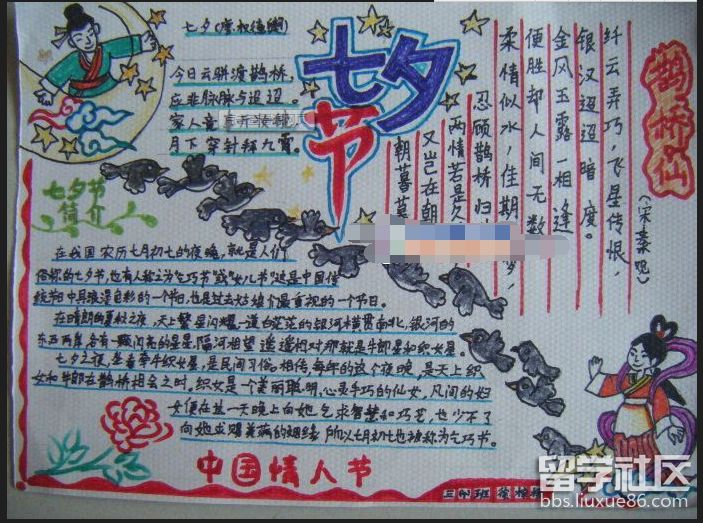 七夕(唐·权德舆)
今日云骈渡鹊桥,
应非脉脉与迢迢。
家人竟喜开妆镜
月下穿针拜九霄。
七夕节
鹊桥仙
(宋秦观)
纤云弄巧,飞星传恨,
银汉迢迢暗度。
金风玉露一相逢
便胜却人间无数
柔情似水,佳期
忍顾鹊桥归
两情若是久
又岂在朝
朝暮暮
七夕节
简介
在我国农历七月初七的夜晚,就是人们
俗称的七夕节,也有人称之为"乞巧节"或"女儿节"这是中国传
统节日中具浪漫色彩的一个节日,也是过去姑娘们最重视的一个节日。
在晴朗的夏秋之夜,天上繁星闪耀一道白茫茫的银河横贯南北,银河的
东西两岸,各有一颗闪亮的星星,隔河相望 遥遥相对那就是牛郎星和织女星。
七夕之夜,坐看牵牛织女星,是民间习俗。相传,每年的这个夜晚,是天上织
女和牛郎在鹊桥相会之时。织女是一个美丽聪明,心灵手巧的仙女,凡间的妇
女便在这一天晚上向她乞求智慧和巧艺,也少不了
向她求赐美满的姻缘 所以七月初七也被称为乞巧节。
中国情人节
留学社区
bbs.liuxue86.com